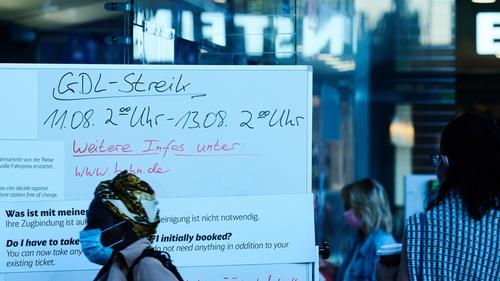 GDL-Streik
11.08. 2⁰⁰ Uhr - 13.08. 2⁰⁰ Uhr
Weitere Infos unter:
www.bahn.de
fahrtantritt von der Reise
volle Fahrpreis erstattet.
ou can decide against
arture station free of charge.
Was ist mit meine
Ihre Zugbindung ist au einigung ist nicht notwendig.
Do I have to take I initially booked?
You can now take any not need anything in addition to your
existing ticket.